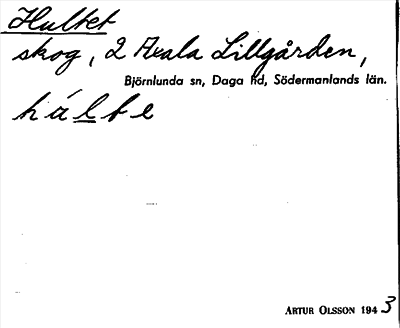 Hultet
skog, 2 Axala Lillgården,
Björnlunda sn, Daga hd, Södermanlands län.
ARTUR OLSSON 1943